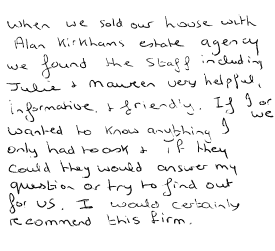 When we sold our house with
Alan Kirkhams estate agency
we found the staff including
Julie + Maureen very helpful,
informative, + friendly. If I or
we
wanted to know anything I
only had to ask + if they
could they would answer my
question or try to find out
for us. I would certainly
recommend this firm.